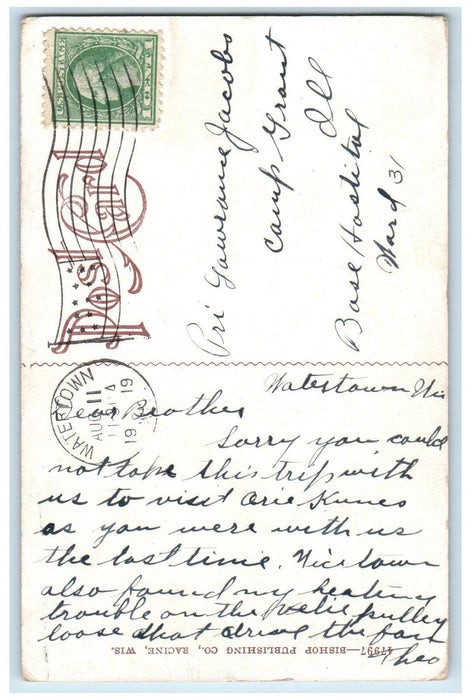 Post Card
WATERTOWN
AUG 11
1919
Pri Lawrance Jacobs
Camp Grant
Ill
Base Hostital
Ward 31
Watertown Wis
Dear Brother
Sorry you could
not take this trip with
us to visit Orie Kunes
as you were with us
the last time. Nice town
also found my heating
trouble on the pulley
loose that drive the fan
Theo
47997—BISHOP PUBLISHING CO., RACINE, WIS.